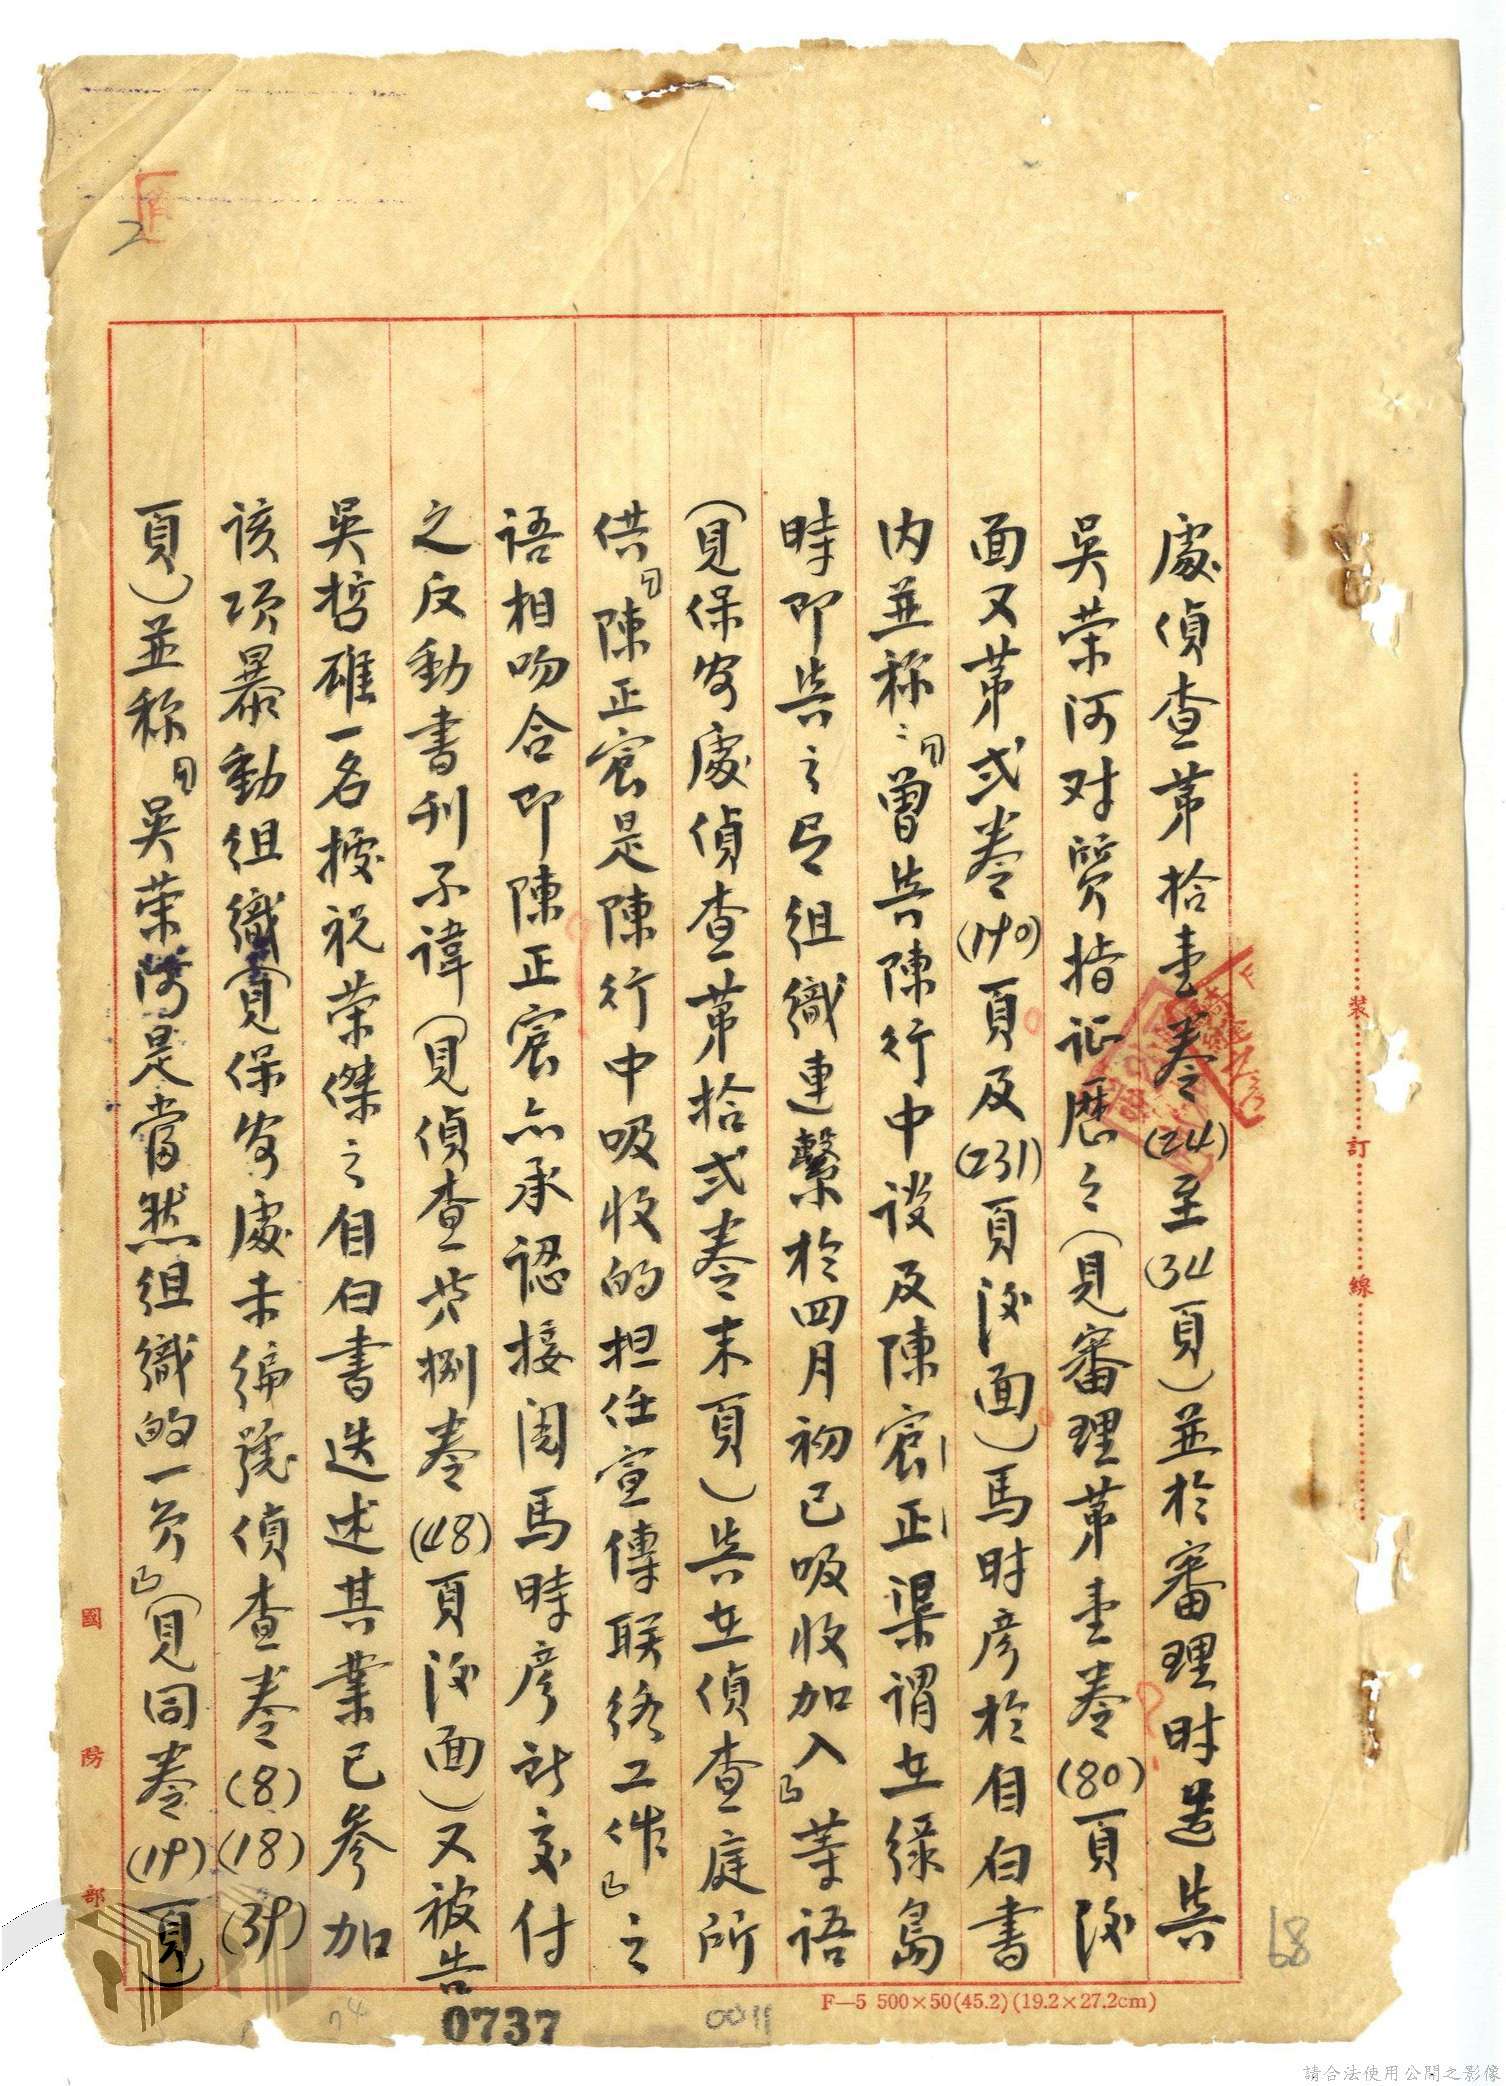 處偵查第拾壹卷(24)至(34頁)並於審理時迭與
吳荣河对質指证歷歷(見審理第壹卷(80)頁後
面又第弍卷(190)頁及(231)頁後面)馬时彦於自白書
内並称:「曾與陳行中谈及陳宸正渠謂在綠島
時即與之有組織連繫於四月初已吸收加入」等語
(見保安處偵查第拾弍卷末頁)與在偵查庭所
供「陳正宸是陳行中吸收的担任宣傳联络工作」之
語相吻合即陳正宸亦承認接閱馬時彦所交付
之反動書刊不諱(見偵查第捌卷(48)頁後面)又被告
吳哲雄一名據祝荣傑之自白書迭述其業已參加
該項暴動組織(見保安處未编號偵查卷(8)(18)(39)
頁)並称「吳荣河是當然組織的一员」(見同卷(19)頁)
裝
訂
線
國
防
部
F—5 500×50(45.2)(19.2×27.2cm)
0737
0011
74
68
2
請合法使用公開之影像